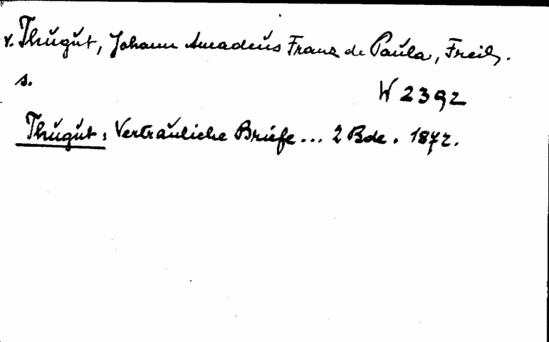 v. Thugut, Johann Amadeus Franz de Paula, Freih.
s.
W 2392
Thugut: Vertrauliche Briefe... 2 Bde. 1872.